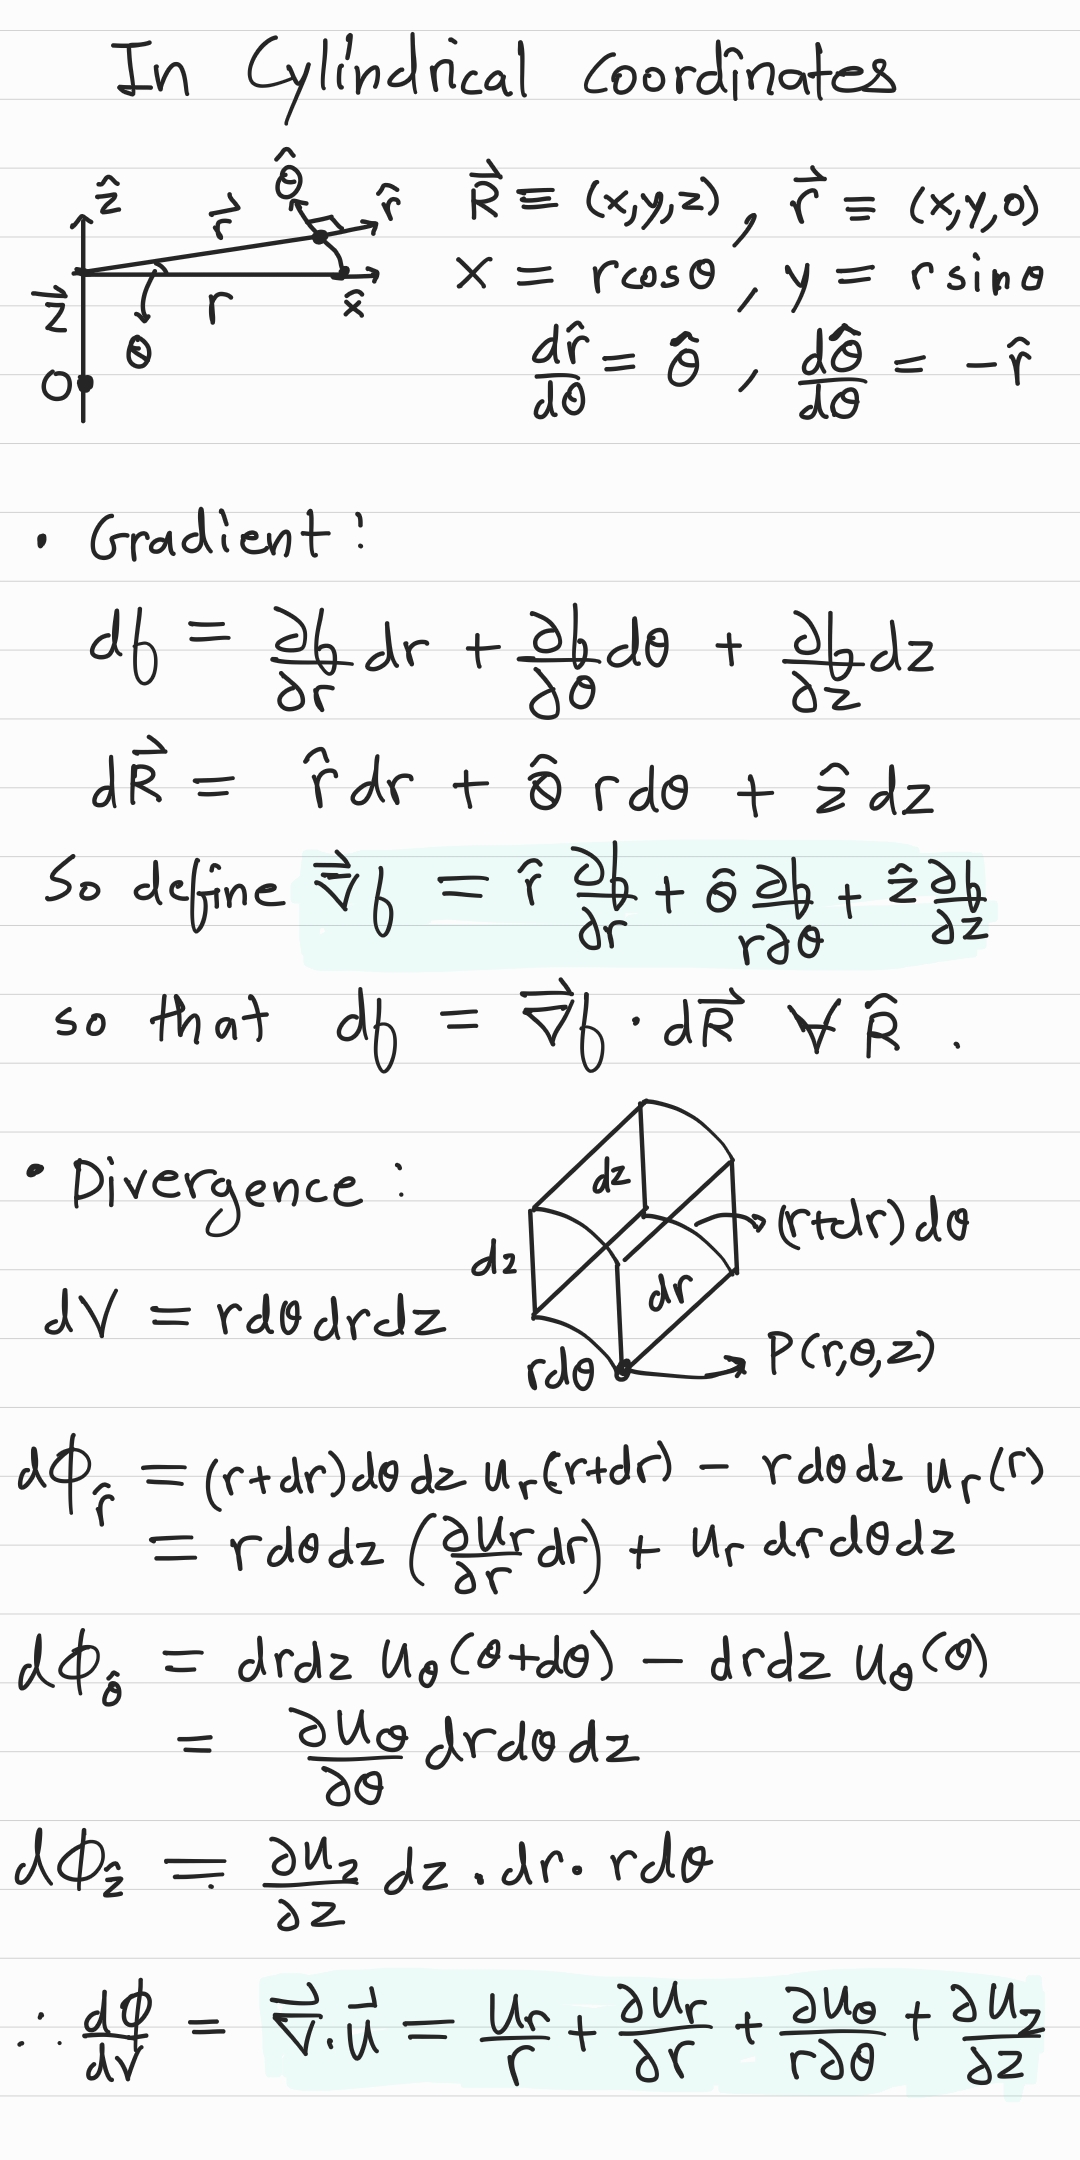 In Cylindrical Coordinates
ẑ r⃗ θ̂ r̂
z⃗ θ̂ r x̂
O
R⃗ ≡ (x,y,z) , r⃗ ≡ (x,y,0)
x = rcosθ , y = r sinθ
dr̂/dθ = θ̂ , dθ̂/dθ = - r̂
• Gradient :
df = ∂f/∂r dr + ∂f/∂θ dθ + ∂f/∂z dz
dR⃗ = r̂ dr + θ̂ r dθ + ẑ dz
So define ∇⃗f = r̂ ∂f/∂r + θ̂ ∂f/r∂θ + ẑ ∂f/∂z
so that df = ∇⃗f · dR⃗ ∀ R̂ .
• Divergence :
dV = rdθ dr dz
dz
dz
(r+dr) dθ
dr
rdθ
P(r,θ,z)
dϕ_r̂ = (r+dr) dθ dz u_r(r+dr) - r dθ dz u_r(r)
= r dθ dz (∂u_r/∂r dr) + u_r dr dθ dz
dϕ_θ̂ = drdz u_θ(θ+dθ) - drdz u_θ(θ)
= ∂u_θ/∂θ dr dθ dz
dϕ_ẑ = ∂u_z/∂z dz · dr · rdθ
∴ dϕ/dV = ∇⃗·u⃗ = u_r/r + ∂u_r/∂r + ∂u_θ/r∂θ + ∂u_z/∂z